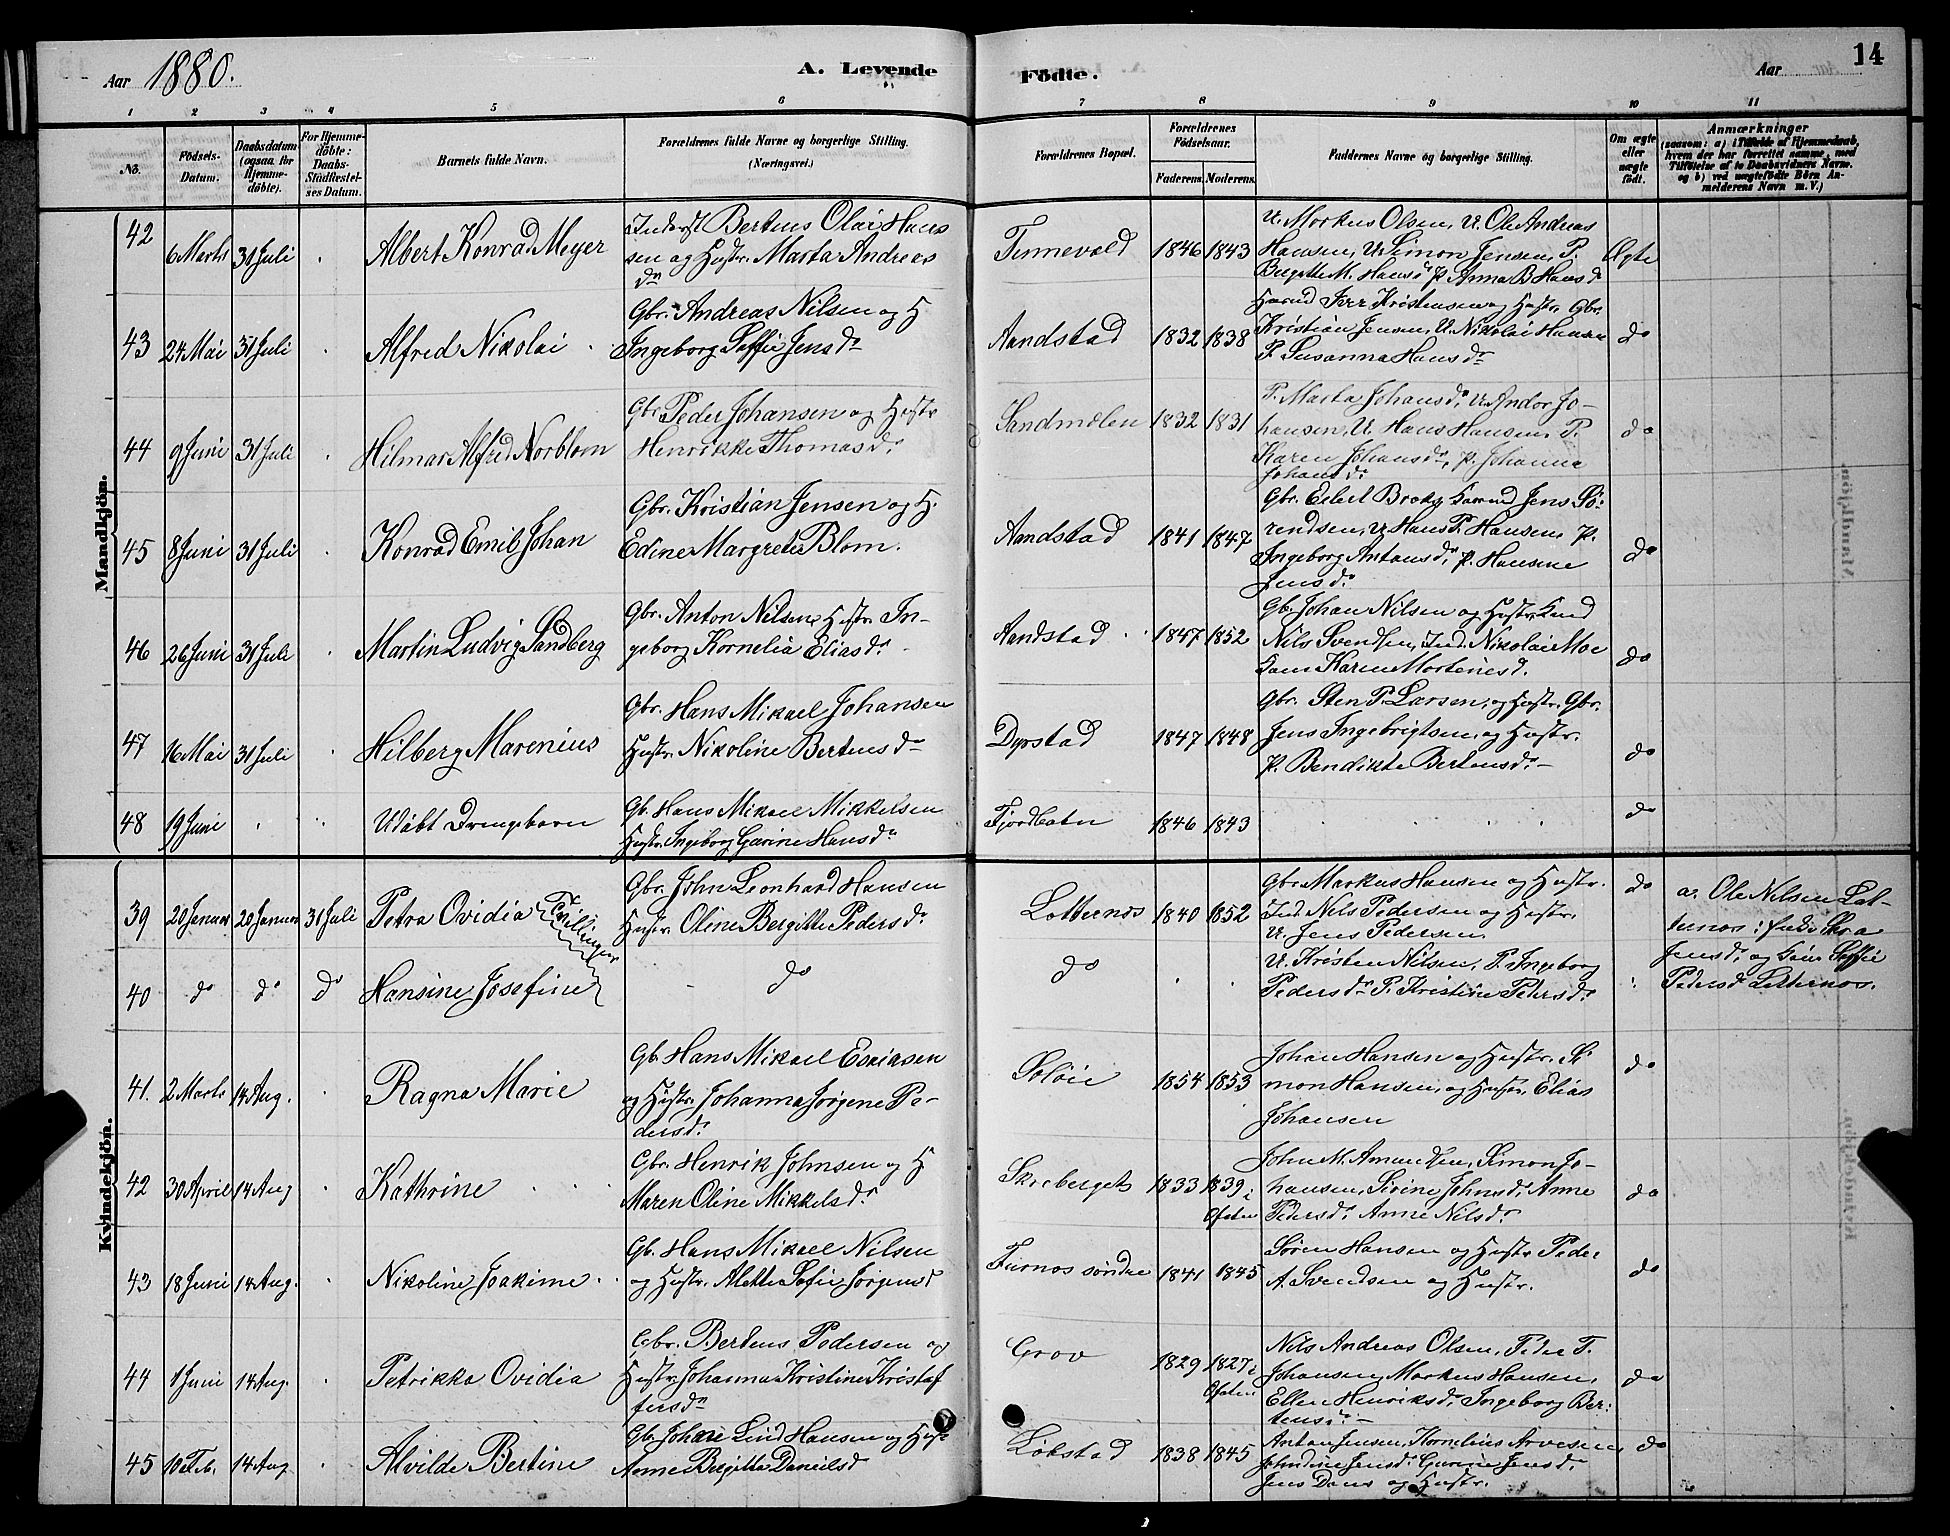 Aar 1880. A. Levende Födte. Aar 14
1 2 3 4 5 6 7 8 9 10 11
No. Födsels-Datum. Daabsdatum (ogsaa for Hjemmedöbte). For Hjemmedöbte: Daabs-Stadfæstelses Datum. Barnets fulde Navn. Forældrenes fulde Navne og borgerlige Stilling. (Næringsvei.) Forældrenes Bopæl. Forældrenes Födselsaar. Faderens. Moderens. Faddernes Navne og borgerlige Stilling. Om ægte eller uægte födt. Anmærkninger (saasom: a) i Tilfælde af Hjemmedaab, hvem der har forrettet samme, med Tilföielse af to Daabsvidners Navne. og b) ved uægtefödte Börn Anmelderens Navn m. V.)
Mandkjön.
42 6 Marts 31 Juli Albert Konrad Meyer
Inderst Berteus Olai Hans
sen og Hustr. Marta Andreas
dr
Tennevold 1846 1843
U. Markus Olsen, U. Ole Andreas
Hansen, U. Simon Jensen, P.
Bergitte M. Hansd. P. Anna B Hansd
Ægte
43 24 Mai 31 Juli Alfred Nikolai
Gbr. Andreas Nilsen og H
Ingeborg Soffie Jensdr
Aandstad 1832 1838
Iver Kristensen og Hustr. Gbr.
Kristian Jensen, U. Nikolai Hansen
P. Susanna Hansdr
do
44 9 Juni 31 Juli Hilmar Alfred Norblom
Gbr. Peder Johansen og Hustr
Henrikke Thomasdr.
Sandmolen 1832 1831
P. Marta Johansdr, U. Andor Jo-
hansen, U. Hans Hansen, P.
Karen Johansdr, P. Johanna
Johansdr
do
45 8 Juni 31 Juli Konrad Emil Johan
Gbr. Kristian Jensen og H.
Edine Margrete Blom.
Aandstad 1841 1847
Gbr. Edert Jens Sö-
rendsen, U. Hans P. Hansen, P.
Ingeborg Antonsdr, P. Hansine
Jensdr.
do
46 26 Juni 31 Juli Martin Ludvig Sandberg
Gbr. Anton Nilsen, Hustr. In-
geborg Kornelia Eliasdr.
Aandstad 1847 1852
Gb. Johan Nilsen og Hustr.
Nils Svendsen, Ind. Nikolai Moe
Karen Mortensd.
do
47 16 Mai 31 Juli Hilberg Marenius
Gbr. Hans Mikael Johansen
Hustr. Nikoline Bertensdr
Dyrstad 1847 1848
Gbr. Sten P. Larsen, og Hustr. Gbr.
Jens Ingebrigtsen, og Hustr.
P. Bendikte Bertensdr.
do
48 19 Juni Udöbt Drengebarn
Gb. Hans Mikael Mikkelsen
Hustr. Ingeborg Garine Hansdr
Fjordbotn 1846 1843
do
Kvindekjön.
39 20 Januar 20 Januar 31 Juli Petra Ovidia Tvillinger
Gbr. John Leonhard Hansen
Hustr. Oline Bergitte Pedersdr.
Lotternos 1840 1852
Gbr. Markus Hansen og Hustr.
Ind. Nils Pedersen og Hustr.
U. Jens Pedersen
do
a. Ole Nilsen Lot-
ternos
Jensd. og Soffie
Pedersd Lotternos.
40 do do do Hansine Josefine
do
do
U. Kristen Nilsen, P. Ingeborg
Pedersdr P. Kristine Pedersdr
41. 2 Marts 14 Aug. Ragna Marie
Gb. Hans Mikael Esaiasen
og Hustr. Johanna Jörgene Pe-
dersdr
Solöie 1854 1853
Johan Hansen og Hustr. Si
mon Hansen, og Hustr. Elias
Johansen
do
42 30 April 14 Aug Kathrine
Gbr. Henrik Johnsen og H
Maren Oline Mikkelsdr
Skroberget 1833 1839 i
Ofoten
John M. Amundsen, Simon Jo-
hansen, Sirine Johnsdr, Anne
Pedersdr. Anne Nilsdr.
do
43 18 Juni 14 Aug. Nikoline Joakime
Gb. Hans Mikael Nilsen
og Hustr. Alette Sofie Jörgensd
Furnos söndre 1841 1845
Sören Hansen og Hustr. Peder
A. Svendsen og Hustr.
do
44 1 Juni 14 Aug. Petrikka Ovidia
Gbr. Bertens Pedersen og
Hustr. Johanna Kristine Kristof
fersdr
Grov 1829 1827 i
Ofoten
Nils Andreas Olsen, Peder T.
Johansen, Markus Hansen,
Ellen Henriksdr, Ingeborg Ber-
tensdr
do
45 10 Feb. 14 Aug Alvilde Bertine
Gb. Johan Lind Hansen og Hust
Anne Bergitta Danielsd
Lökstad 1838 1845
Anton Jensen, Kornelius Arvesen,
Johndine Jensdr. Garine Jensd.
Jens Dans og Hustr.
do